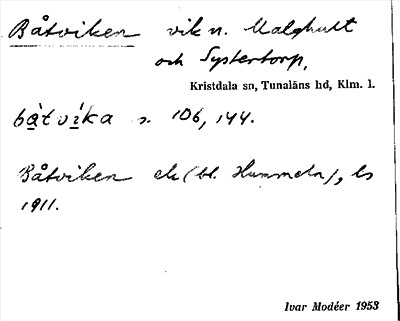 Båtviken vik n. Malghult
och Systertorp,
Kristdala sn, Tunaläns hd, Klm. l.
bà̱t vì̱ka s. 106, 144.
Båtviken ek (bl. Hummeln), ls
1911.
Ivar Modéer 1953